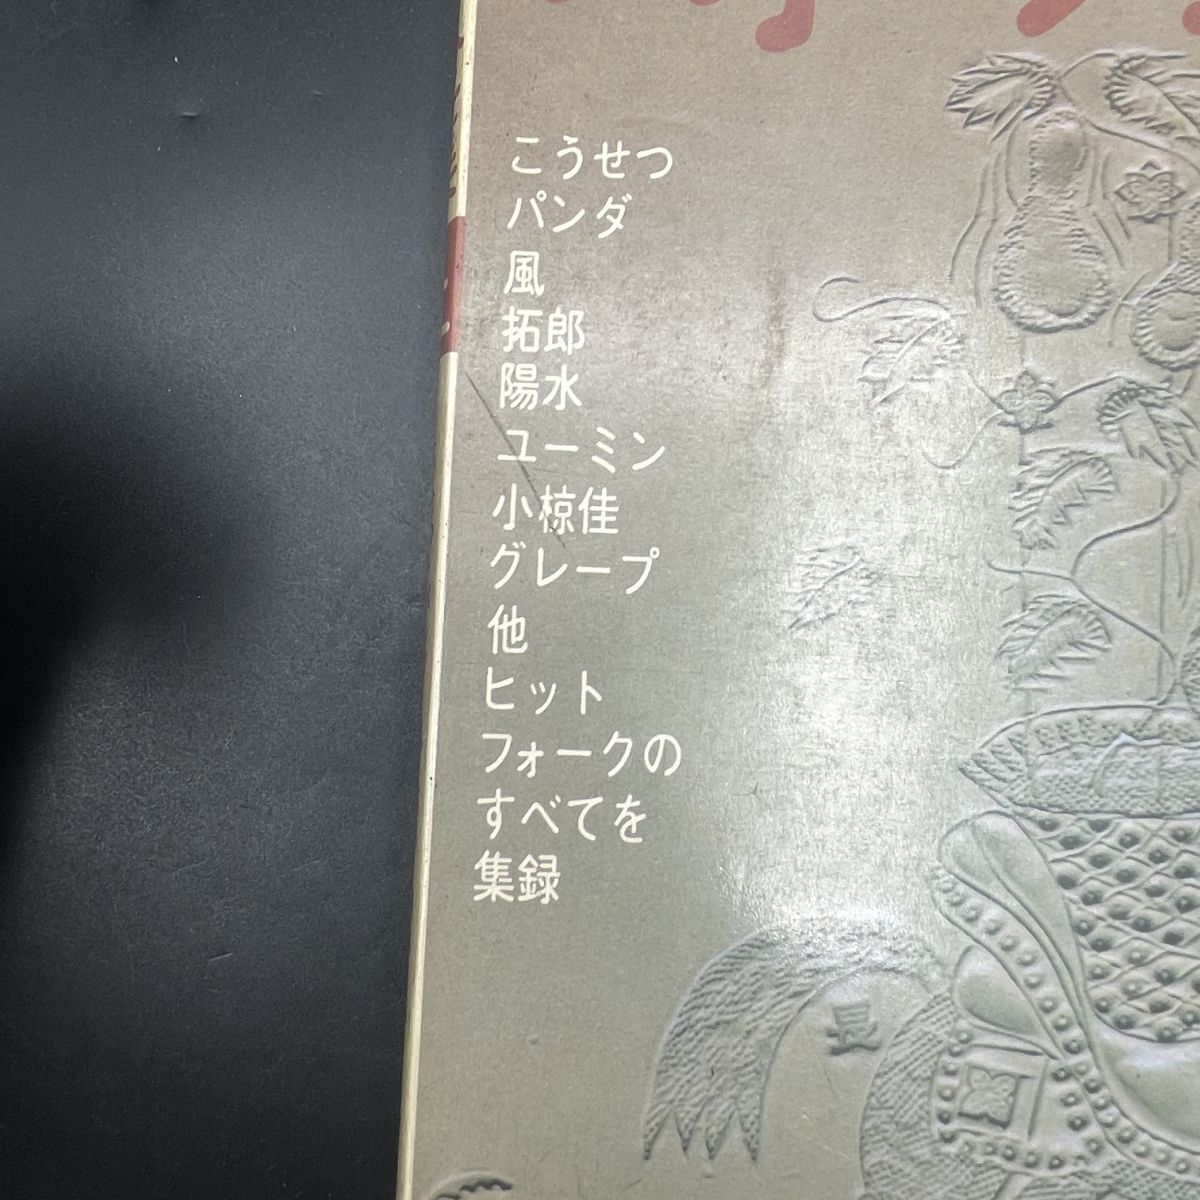 こうせつ
パンダ
風
拓郎
陽水
ユーミン
小椋佳
グレープ
他
ヒット
フォークの
すべてを
集録